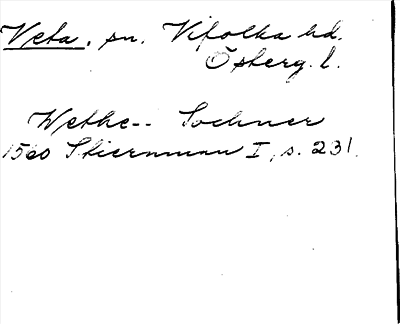 Veta, sn. Vifolka hd.
Österg. l.
Wethe-- Sochner
1560 Stiernman I, s. 231.